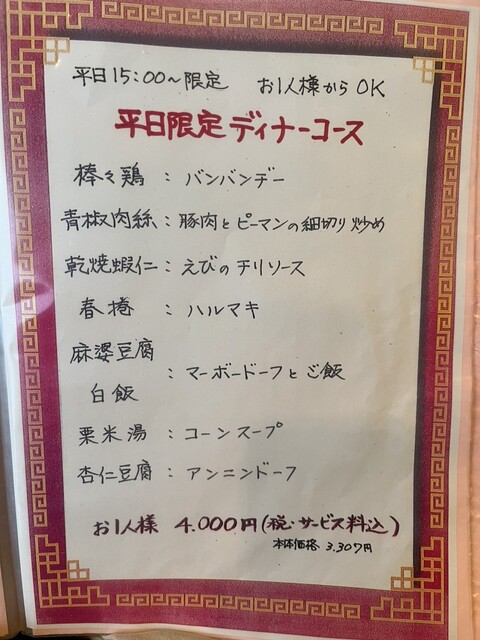 平日15:00～限定 お1人様からOK
平日限定ディナーコース
棒々鶏：バンバンヂー
青椒肉絲：豚肉とピーマンの細切り炒め
乾焼蝦仁：えびのチリソース
春捲：ハルマキ
麻婆豆腐
：マーボードーフとご飯
白飯
粟米湯：コーンスープ
杏仁豆腐：アンニンドーフ
お1人様 4.000円(税・サービス料込)
本体価格 3.307円